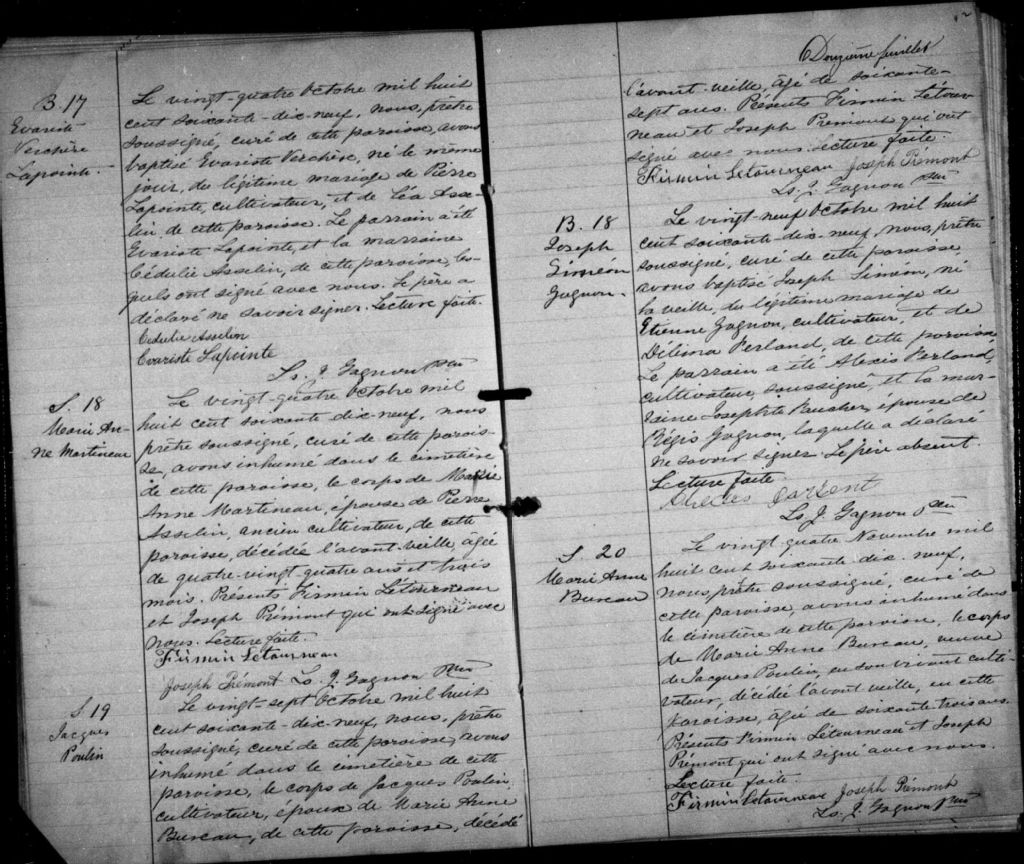 B. 17
Evariste
Verchère
Lapointe.
Le vingt-quatre Octobre mil huit
cent soixante-dix-neuf, nous, prêtre
soussigné, curé de cette paroisse, avons
baptisé Evariste Verchère, né le même
jour, du légitime mariage de Pierre
Lapointe, cultivateur, et de Léa Asse-
lin de cette paroisse. Le parrain a été
Evariste Lapointe, et la marraine
Cédulie Asselin, de cette paroisse, les-
quels ont signé avec nous. Le père a
déclaré ne savoir signer. Lecture faite.
Cedulie Asselin
Evariste Lapointe
Ls. J. Gagnon Ptre
S. 18
Marie An-
ne Martineau
Le vingt-quatre Octobre mil
huit cent soixante-dix-neuf, nous
prêtre soussigné, curé de cette parois-
se, avons inhumé dans le cimetière
de cette paroisse, le corps de Marie
Anne Martineau, épouse de Pierre
Asselin, ancien cultivateur, de cette
paroisse, décédée l'avant-veille, agée
de quatre-vingt-quatre ans et trois
mois. Présents Firmin Létourneau
et Joseph Prémont qui ont signé avec
nous. Lecture faite.
Firmin Letourneau
Joseph Prémont Ls. J. Gagnon Ptre
S 19
Jacques
Poulin
Le vingt-sept Octobre mil huit
cent soixante-dix-neuf, nous, prêtre
soussigné, curé de cette paroisse, avons
inhumé dans le cimetière de cette
paroisse, le corps de Jacques Poulin,
cultivateur, époux de Marie Anne
Bureau, de cette paroisse, décédé
Douzième feuillet
l'avant-veille, agé de soixante-
sept ans. Présents Firmin Létour-
neau et Joseph Prémont qui ont
signé avec nous. Lecture faite.
Firmin Letourneau Joseph Prémont
Ls. J. Gagnon Ptre
B. 18
Joseph
Siméon
Gagnon.
Le vingt-neuf Octobre mil huit
cent soixante-dix-neuf, nous, prêtre
soussigné, curé de cette paroisse,
avons baptisé Joseph Siméon, né
la veille, du légitime mariage de
Etienne Gagnon, cultivateur, et de
Délima Perland, de cette paroisse.
Le parrain a été Alexis Perland,
cultivateur, soussigné, et la mar-
raine Josephte Paucher, épouse de
Régis Gagnon, laquelle a déclaré
ne savoir signer. Le père absent.
Lecture faite.
Ls. J. Gagnon Ptre
S 20
Marie Anne
Bureau
Le vingt-quatre Novembre mil
huit cent soixante-dix-neuf,
nous, prêtre soussigné, curé de
cette paroisse, avons inhumé dans
le cimetière de cette paroisse, le corps
de Marie Anne Bureau, veuve
de Jacques Poulin, en son vivant culti-
vateur, décédée l'avant veille, en cette
paroisse, agée de soixante-trois ans.
Présents Firmin Létourneau et Joseph
Prémont qui ont signé avec nous.
Lecture faite.
Firmin Letourneau Joseph Prémont
Ls. J. Gagnon Ptre